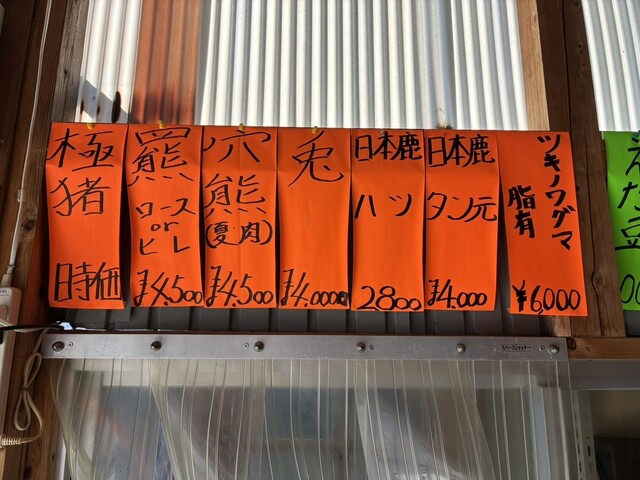 極
猪
時価
羆
ロース
or
ヒレ
¥4,500
穴
熊
(夏肉)
¥4,500
兎
¥4,000
日本鹿
ハツ
2800
日本鹿
タン元
¥4,000
ツキノワグマ
脂有
¥6,000
えだ豆